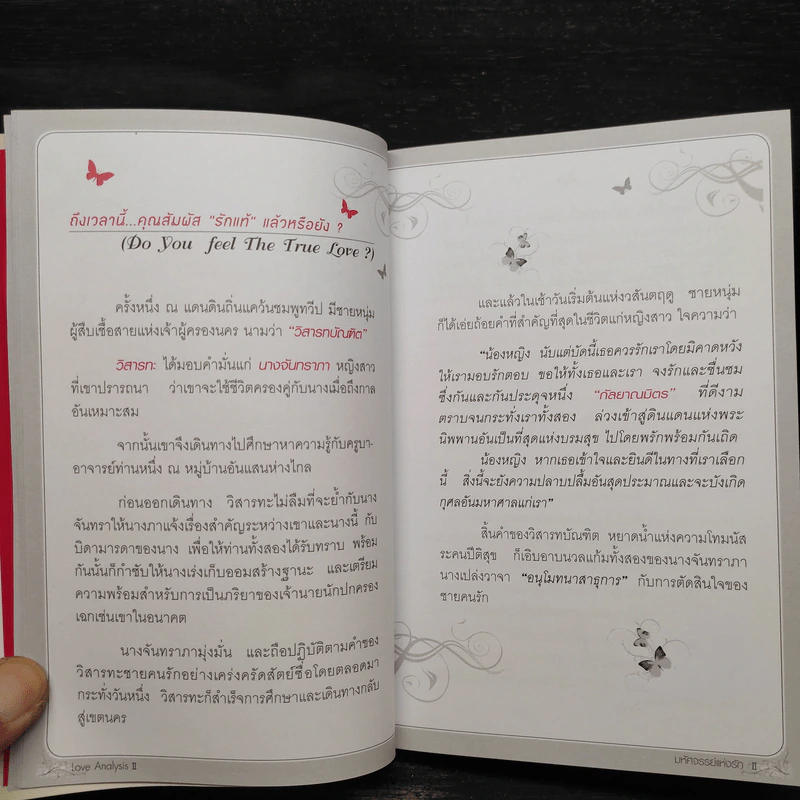 ถึงเวลานี้...คุณสัมผัส "รักแท้" แล้วหรือยัง ?
(Do You feel The True Love ?)
ครั้งหนึ่ง ณ แดนดินถิ่นแคว้นชมพูทวีป มีชายหนุ่ม
ผู้สืบเชื้อสายแห่งเจ้าผู้ครองนคร นามว่า "วิสารทบัณฑิต"
วิสารทะ ได้มอบคำมั่นแก่ นางจันทราภา หญิงสาว
ที่เขาปรารถนา ว่าเขาจะใช้ชีวิตครองคู่กับนางเมื่อถึงกาล
อันเหมาะสม
จากนั้นเขาจึงเดินทางไปศึกษาหาความรู้กับครูบา-
อาจารย์ท่านหนึ่ง ณ หมู่บ้านอันแสนห่างไกล
ก่อนออกเดินทาง วิสารทะไม่ลืมที่จะย้ำกับนาง
จันทราให้นางภาแจ้งเรื่องสำคัญระหว่างเขาและนางนี้ กับ
บิดามารดาของนาง เพื่อให้ท่านทั้งสองได้รับทราบ พร้อม
กันนั้นก็กำชับให้นางเร่งเก็บออมสร้างฐานะ และเตรียม
ความพร้อมสำหรับการเป็นภริยาของเจ้านายนักปกครอง
เอกเช่นเขาในอนาคต
นางจันทราภามุ่งมั่น และถือปฏิบัติตามคำของ
วิสารทะชายคนรักอย่างเคร่งครัดสัตย์ซื่อโดยตลอดมา
กระทั่งวันหนึ่ง วิสารทะก็สำเร็จการศึกษาและเดินทางกลับ
สู่เขตนคร
Love Analysis II
และแล้วในเช้าวันเริ่มต้นแห่งวสันตฤดู ชายหนุ่ม
ก็ได้เอ่ยถ้อยคำที่สำคัญที่สุดในชีวิตแก่หญิงสาว ใจความว่า
"น้องหญิง นับแต่บัดนี้เธอควรรักเราโดยมิคาดหวัง
ให้เรามอบรักตอบ ขอให้ทั้งเธอและเรา จงรักและชื่นชม
ซึ่งกันและกันประดุจหนึ่ง "กัลยาณมิตร" ที่ดีงาม
ตราบจนกระทั่งเราทั้งสอง ล่วงเข้าสู่ดินแดนแห่งพระ
นิพพานอันเป็นที่สุดแห่งบรมสุข ไปโดยพรักพร้อมกันเถิด
น้องหญิง หากเธอเข้าใจและยินดีในทางที่เราเลือก
นี้ สิ่งนี้จะยังความปลาบปลื้มอันสุดประมาณและจะบังเกิด
กุศลอันมหาศาลแก่เรา"
สิ้นคำของวิสารทบัณฑิต หยาดน้ำแห่งความโทมนัส
ระคนปีติสุข ก็เอิบอาบนวลแก้มทั้งสองของนางจันทราภา
นางเปล่งวาจา "อนุโมทนาสาธุการ" กับการตัดสินใจของ
ชายคนรัก
มหัศจรรย์แห่งรัก II